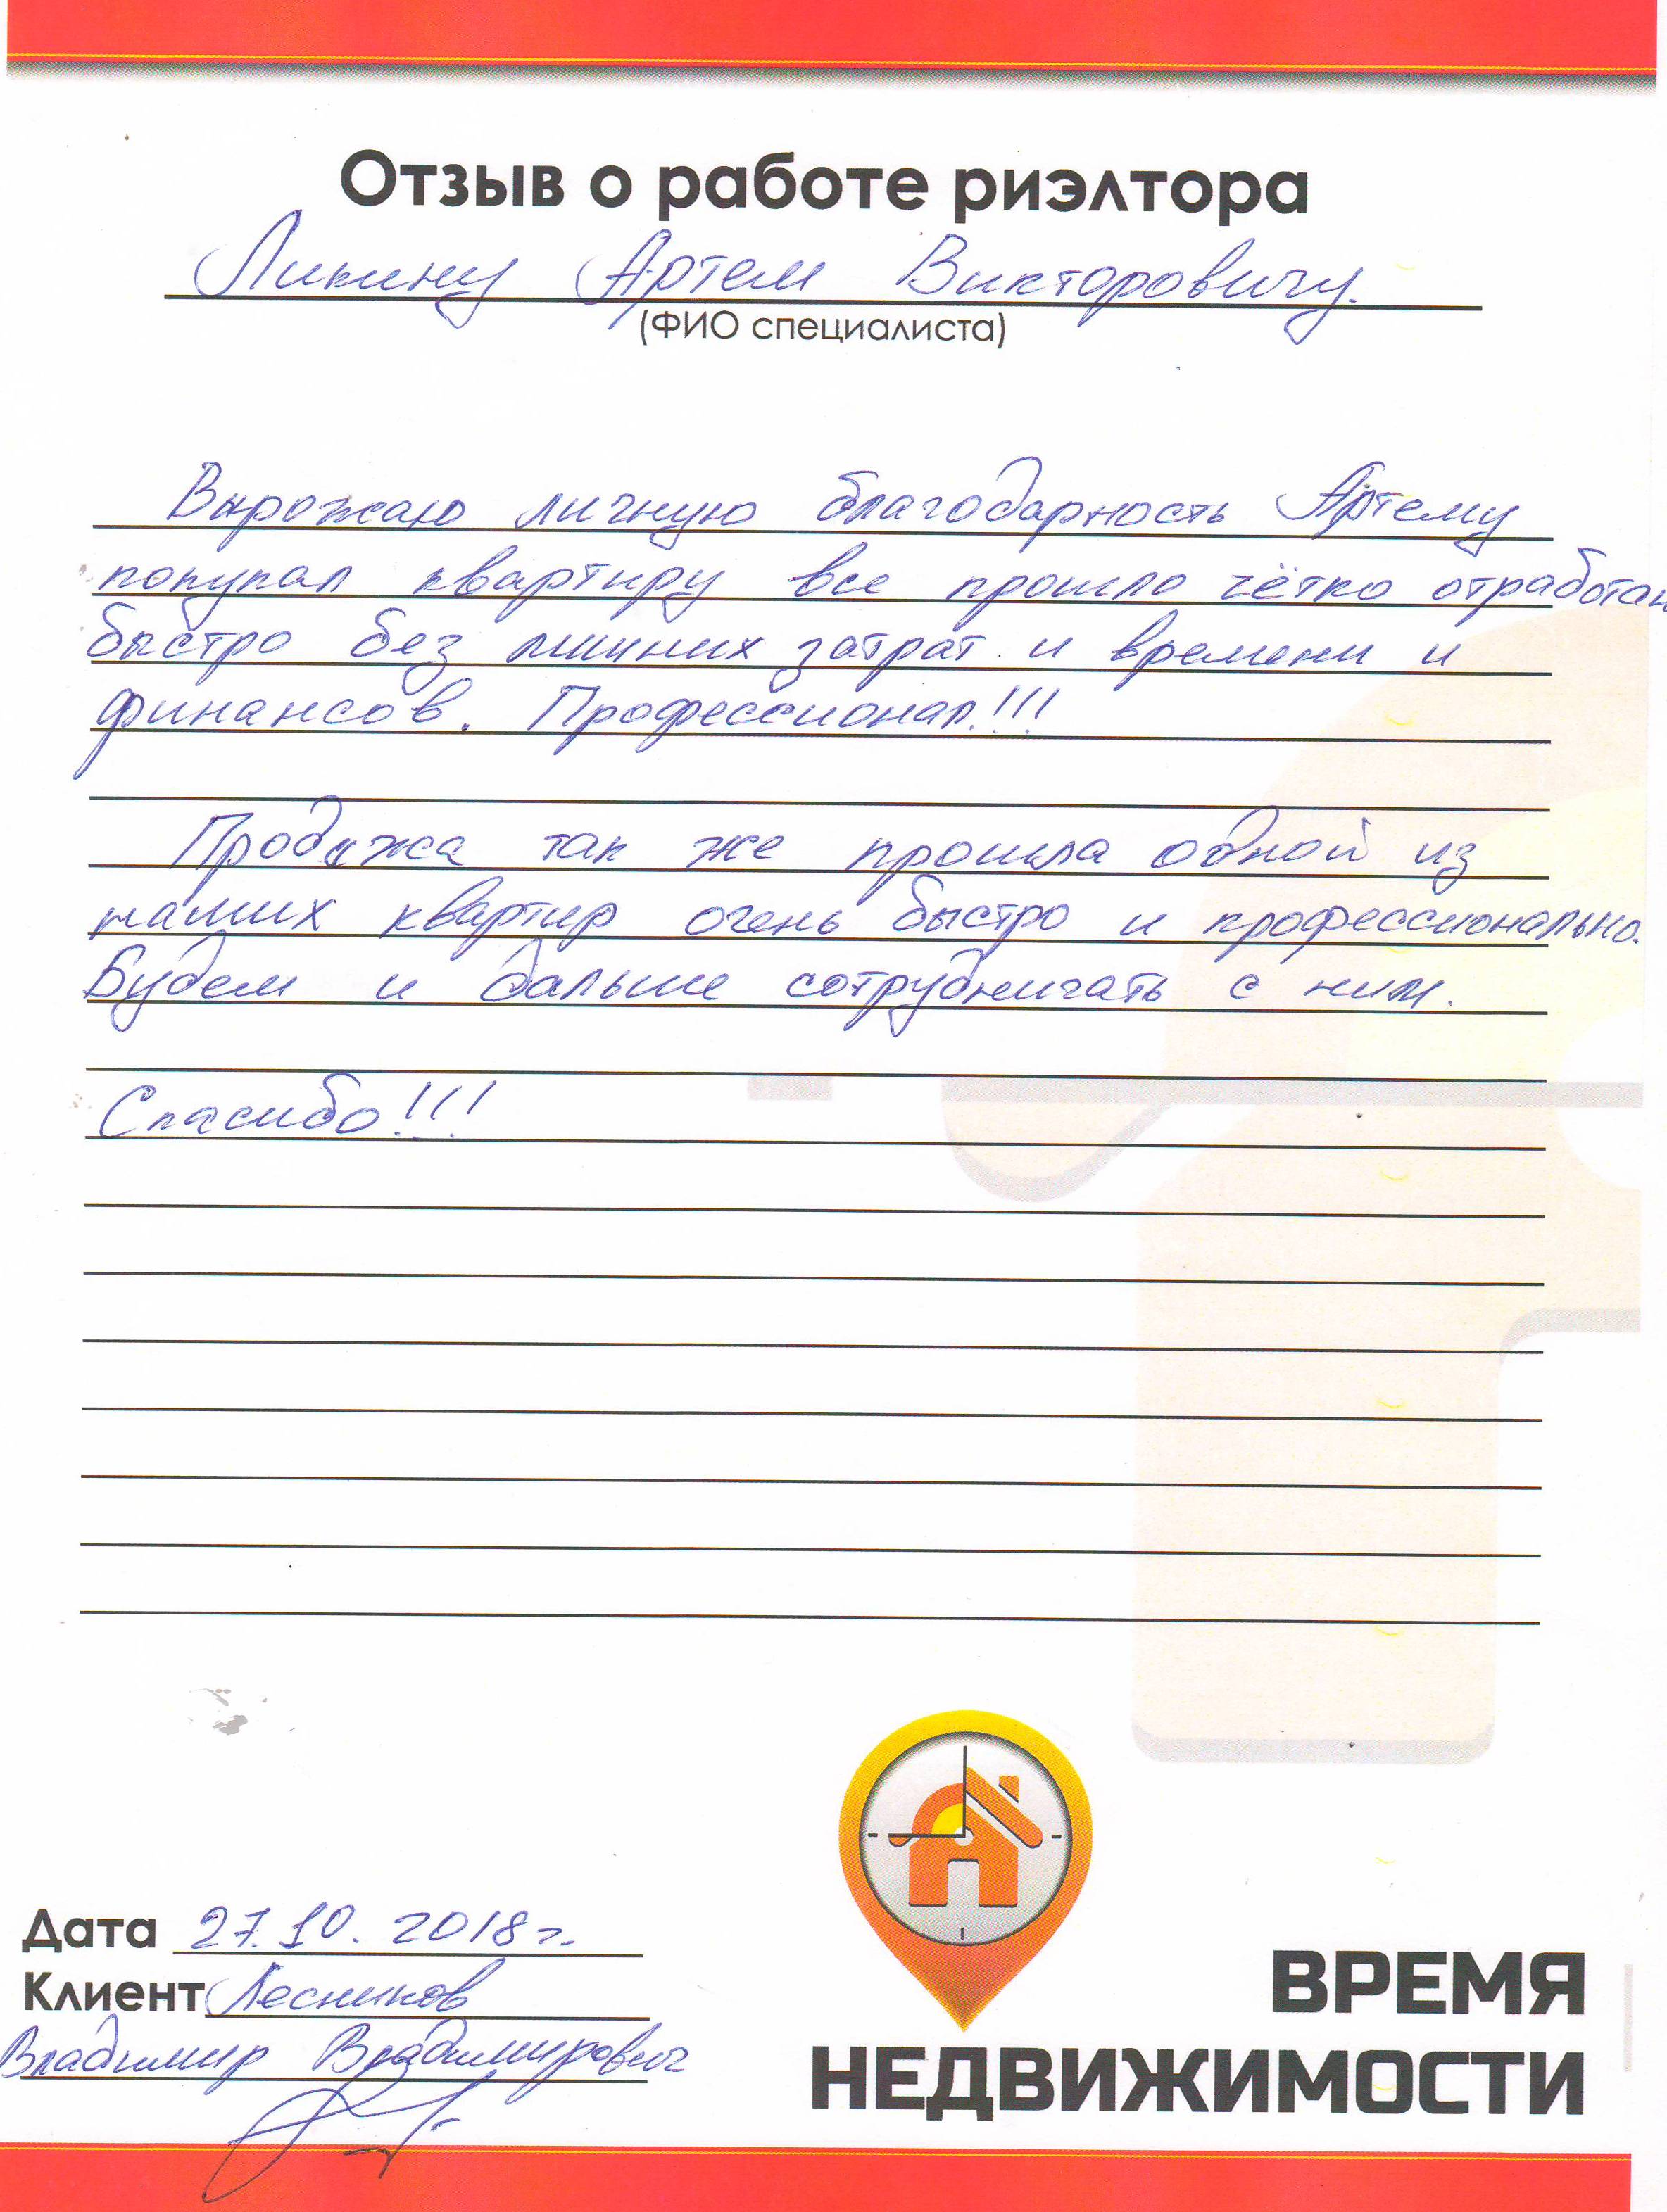 Отзыв о работе риэлтора
Ликину Артем Викторовичу.
(ФИО специалиста)
Выражаю личную благодарность Артему
покупал квартиру все прошло чётко отработан
быстро без лишних затрат и времени и
финансов. Профессионал!!!
Продажа так же прошла одной из
наших квартир очень быстро и профессионально.
Будем и дальше сотрудничать с ним.
Спасибо!!!
Дата 27.10.2018г.
Клиент Лесников
Владимир Владимирович
ВРЕМЯ
НЕДВИЖИМОСТИ